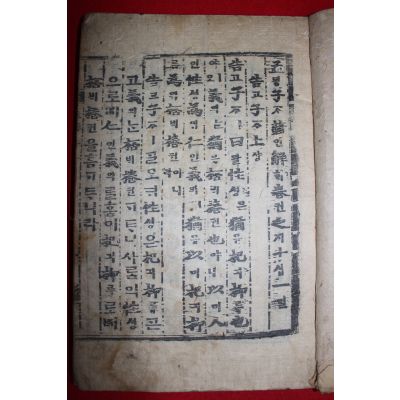 孟ᄆᆡᆼ子ᄌᆞ諺언解ᄒᆡ卷권之지十십一일
告고子ᄌᆞ上샹
告고子ᄌᆞㅣ曰왈性셩은猶유杞긔柳류也
야ㅣ오義의ᄂᆞᆫ猶유桮ᄇᆡ棬권也야ㅣ니以이人
인性셩爲위仁인義의ㅣ猶유以이杞긔柳
류爲위桮ᄇᆡ棬권이니라
告고子ᄌᆞㅣᄀᆞᆯ오ᄃᆡ性셩은杞긔柳류ᄀᆞᆮ
고義의ᄂᆞᆫ桮ᄇᆡ棬권ᄀᆞᆮᄐᆞ니사ᄅᆞᆷ의性셩
으로ᄡᅥ仁인義의ᄅᆞᆯ홈이杞긔柳류로ᄡᅥ
桮ᄇᆡ棬권을홈ᄀᆞᆮᄐᆞ니라